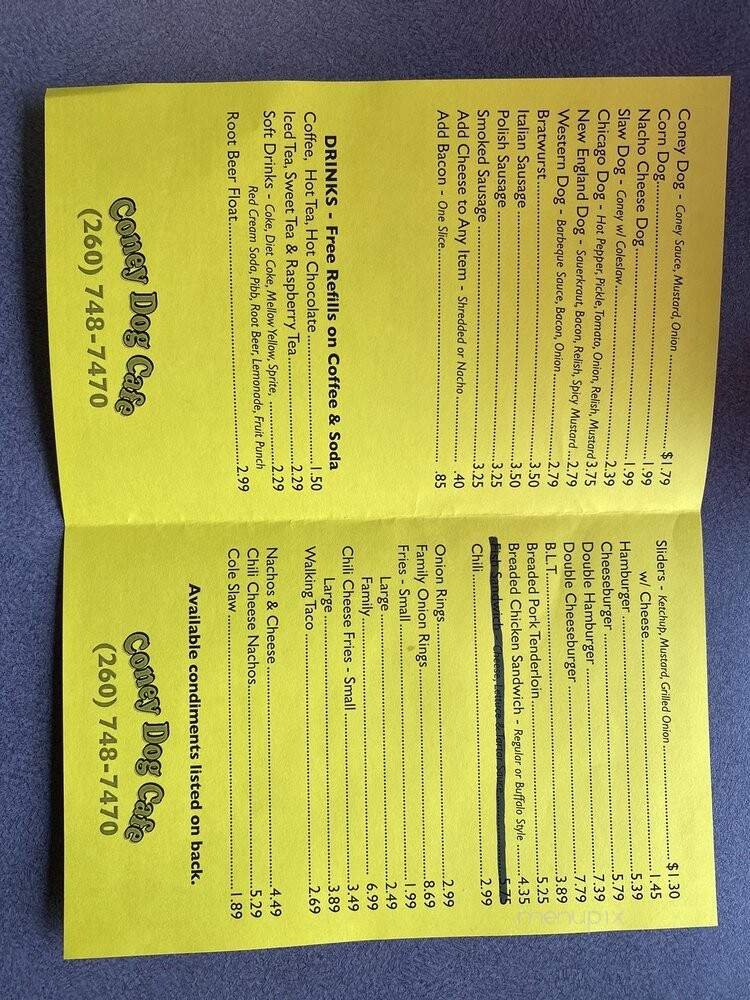 Coney Dog - Coney Sauce, Mustard, Onion ........ $1.79
Corn Dog ........ 1.99
Nacho Cheese Dog ........ 1.99
Slaw Dog - Coney w/ Coleslaw ........ 2.39
Chicago Dog - Hot Pepper, Pickle, Tomato, Onion, Relish, Mustard 3.75
New England Dog - Sauerkraut, Bacon, Relish, Spicy Mustard ... 2.79
Western Dog - Barbeque Sauce, Bacon, Onion ........ 2.79
Bratwurst ........ 3.50
Italian Sausage ........ 3.50
Polish Sausage ........ 3.25
Smoked Sausage ........ 3.25
Add Cheese to Any Item - Shredded or Nacho ........ .40
Add Bacon - One Slice ........ .85
DRINKS - Free Refills on Coffee & Soda
Coffee, Hot Tea, Hot Chocolate ........ 1.50
Iced Tea, Sweet Tea & Raspberry Tea ........ 2.29
Soft Drinks - Coke, Diet Coke, Mellow Yellow, Sprite, ........ 2.29
Red Cream Soda, Pibb, Root Beer, Lemonade, Fruit Punch
Root Beer Float ........ 2.99
Coney Dog Cafe
(260) 748-7470
Sliders - Ketchup, Mustard, Grilled Onion ........ $1.30
w/ Cheese ........ 1.45
Hamburger ........ 5.39
Cheeseburger ........ 5.79
Double Hamburger ........ 7.39
Double Cheeseburger ........ 7.79
B.L.T. ........ 3.89
Breaded Pork Tenderloin ........ 5.25
Breaded Chicken Sandwich - Regular or Buffalo Style ........ 4.35
Fish Sandwich - Cheese, Lettuce & Tartar Sauce ........ 5.75
Chili ........ 2.99
Onion Rings ........ 2.99
Family Onion Rings ........ 8.69
Fries - Small ........ 1.99
Large ........ 2.49
Family ........ 6.99
Chili Cheese Fries - Small ........ 3.49
Large ........ 3.89
Walking Taco ........ 2.69
Nachos & Cheese ........ 4.49
Chili Cheese Nachos ........ 5.29
Cole Slaw ........ 1.89
Available condiments listed on back.
Coney Dog Cafe
(260) 748-7470
menupix